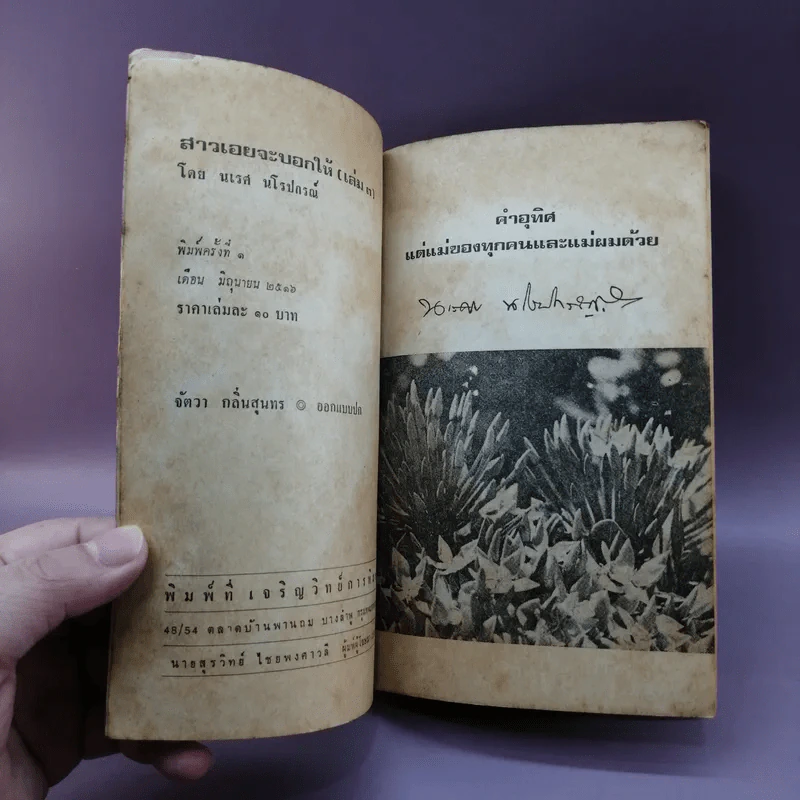 สาวเอยจะบอกให้ (เล่ม ๓)
โดย นเรศ นโรปกรณ์
พิมพ์ครั้งที่ ๑
เดือน มิถุนายน ๒๕๑๖
ราคาเล่มละ ๑๐ บาท
จัตวา กลิ่นสุนทร ◎ ออกแบบปก
พิมพ์ที่ เจริญวิทย์การพิม
48/54 ตลาดบ้านพานถม บางลำพู
นายสุรวิทย์ ไชยพงศาวลี
คำอุทิศ
แด่แม่ของทุกคนและแม่ผมด้วย
นเรศ นโรปกรณ์